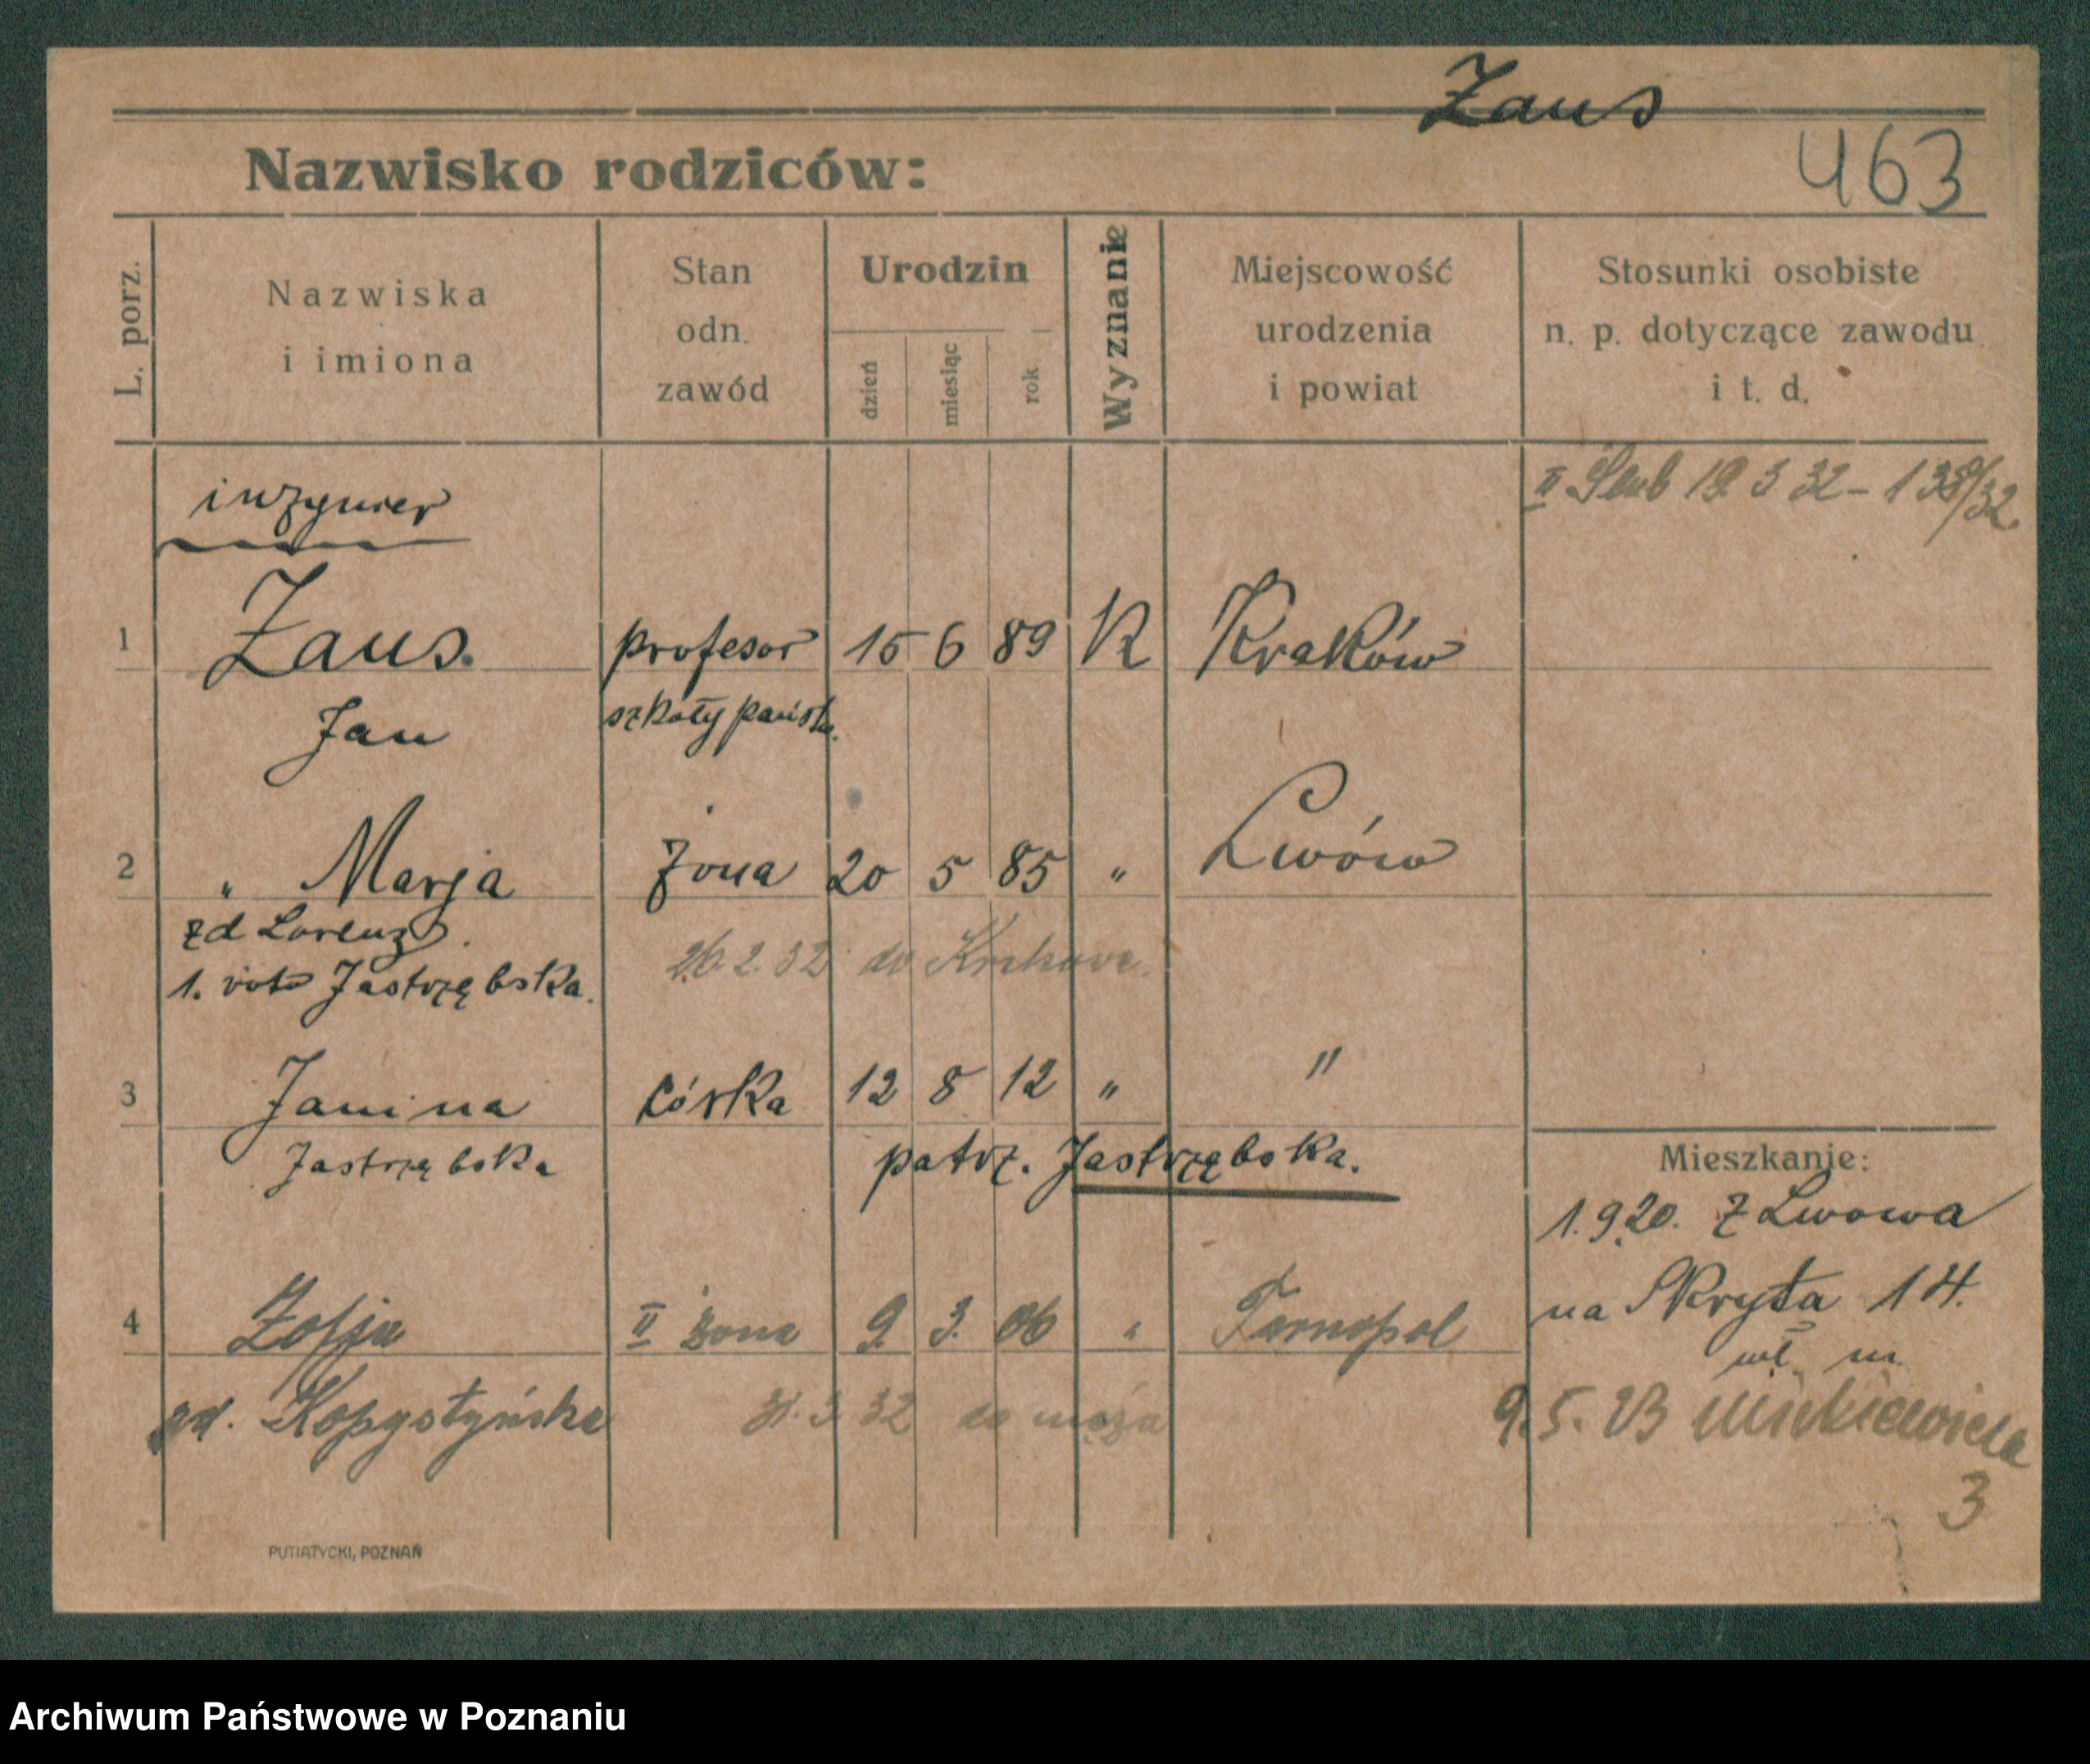 Zaus
463
Nazwisko rodziców:
L. porz.
Nazwiska
i imiona
Stan
odn.
zawód
Urodzin
dzień
miesiąc
rok
Wyznanie
Miejscowość
urodzenia
i powiat
Stosunki osobiste
n. p. dotyczące zawodu
i t. d.
inżynier
II Slub 19. 3 32 - 138/32.
1 Zaus. profesor 15 6 89 K Kraków
Jan szkoły państw.
2 „ Marja żona 20 5 85 „ Lwów
zd Lorenz.
26. 2. 32 do Krakowa.
1. voto Jastrzębska.
3 Janina córka 12 8 12 „ „
Jastrzębska patrz. Jastrzębska.
Mieszkanie:
1.9.20. z Lwowa
na Skryta 14.
wł. m.
4 Zofja II żona 9. 3. 06 „ Tarnopol
zd. Kopystyńska 31. 3. 32 do męża
9. 5. 23 Mickiewicza
3
PUTIATYCKI, POZNAŃ
Archiwum Państwowe w Poznaniu